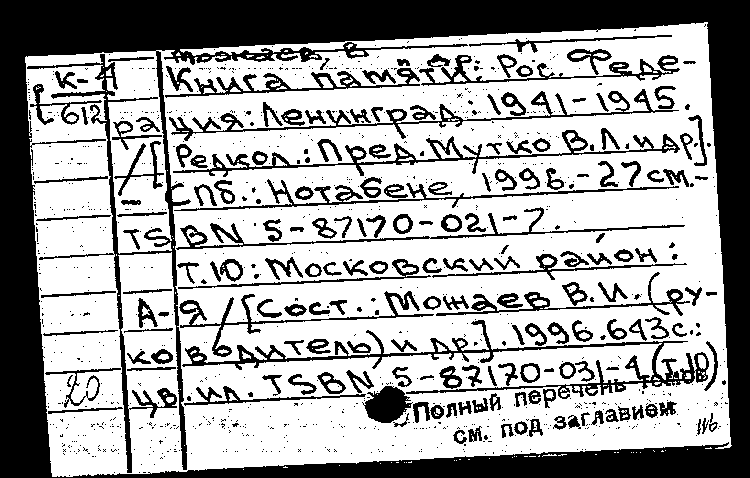 Можаев, В
К-4 Книга памяти: Рос. Феде-
612 рация: Ленинград: 1941-1945.
/[Редкол.: Пред. Мутко В.Л. и др].
- СПб.: Нотабене, 1996. - 27 см. -
ISBN 5-87170-021-7.
Т.10: Московский район:
А-Я / [Сост.: Можаев В.И. (ру-
ководитель) и др.]. 1996. 643 с.:
20 цв. ил. ISBN 5-87170-031-4 (т.10).
Полный перечень томов
см. под заглавием